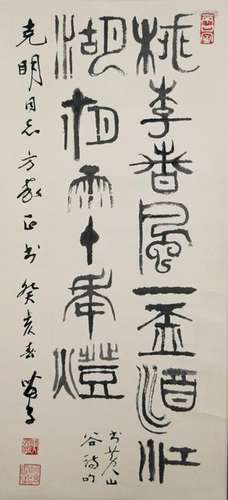 桃李春風一盃酒江
湖夜雨十年燈
书黄山
谷詩句
克明同志方家正书 癸亥春